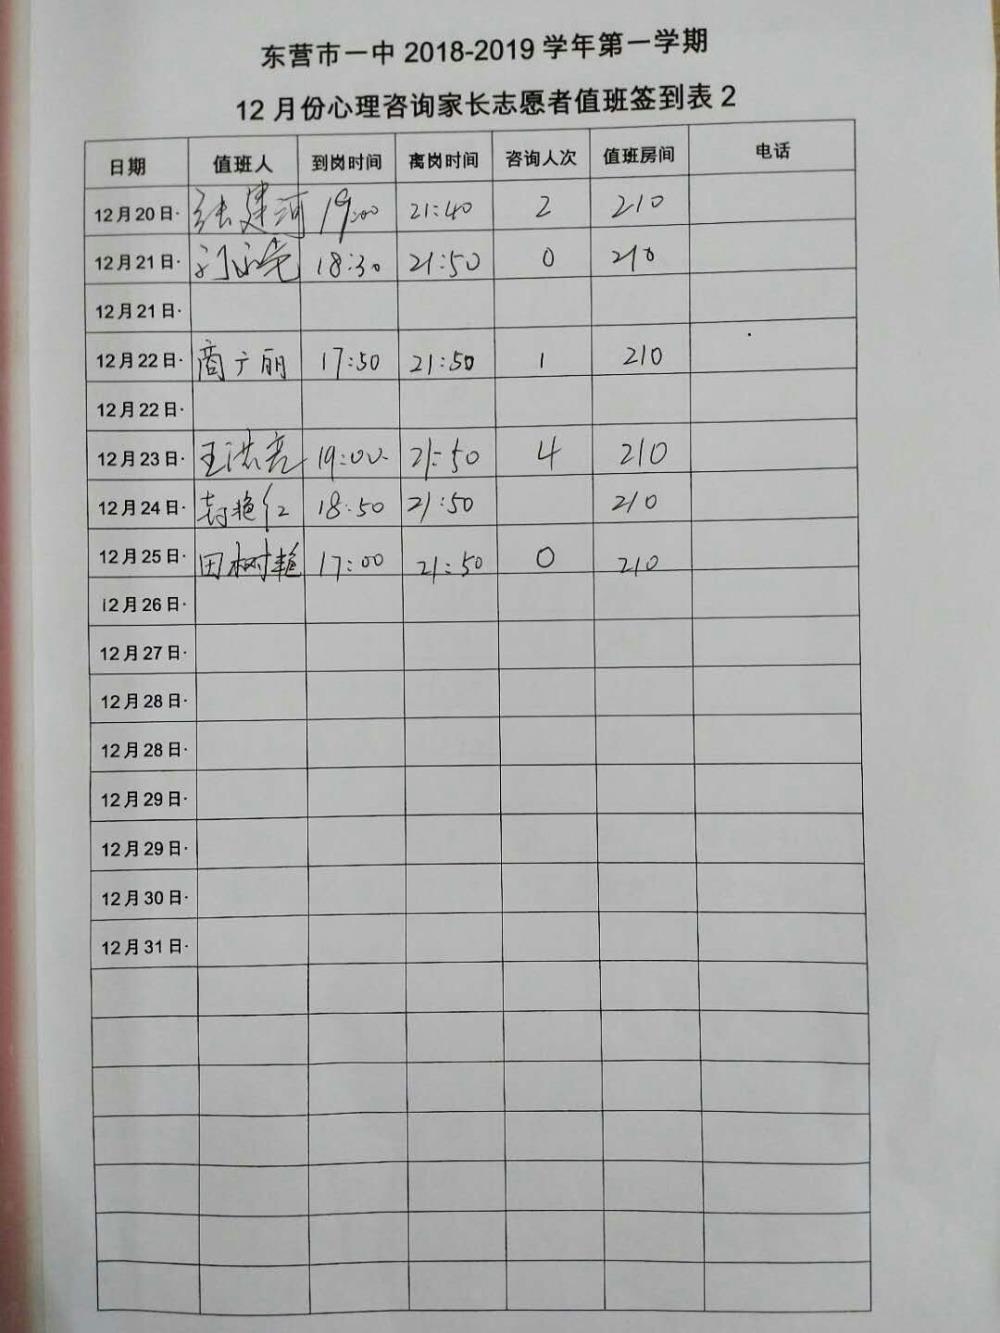 东营市一中 2018-2019 学年第一学期
12 月份心理咨询家长志愿者值班签到表 2
日期 值班人 到岗时间 离岗时间 咨询人次 值班房间 电话
12月20日· 张建河 19:00 21:40 2 210
12月21日· 18:30 21:50 0 210
12月21日·
12月22日· 商广丽 17:50 21:50 1 210
12月22日·
12月23日· 王洪亮 19:00 21:50 4 210
12月24日· 封艳红 18:50 21:50 210
12月25日· 田树艳 17:00 21:50 0 210
12月26日·
12月27日·
12月28日·
12月28日·
12月29日·
12月29日·
12月30日·
12月31日·